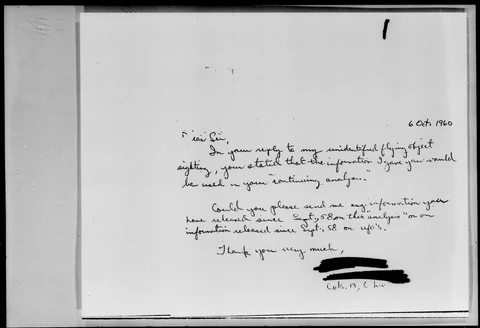 6 Oct. 1960
Dear Sir,
In your reply to my unidentified flying object
sighting, you stated that the information I gave you would
be used in your "continuing analysis."
Could you please send me any information you
have released since Sept., 58 on this "analysis" or on
information released since Sept., 58 on UFO's.
Thank you very much,
Cols. 13, Ohio